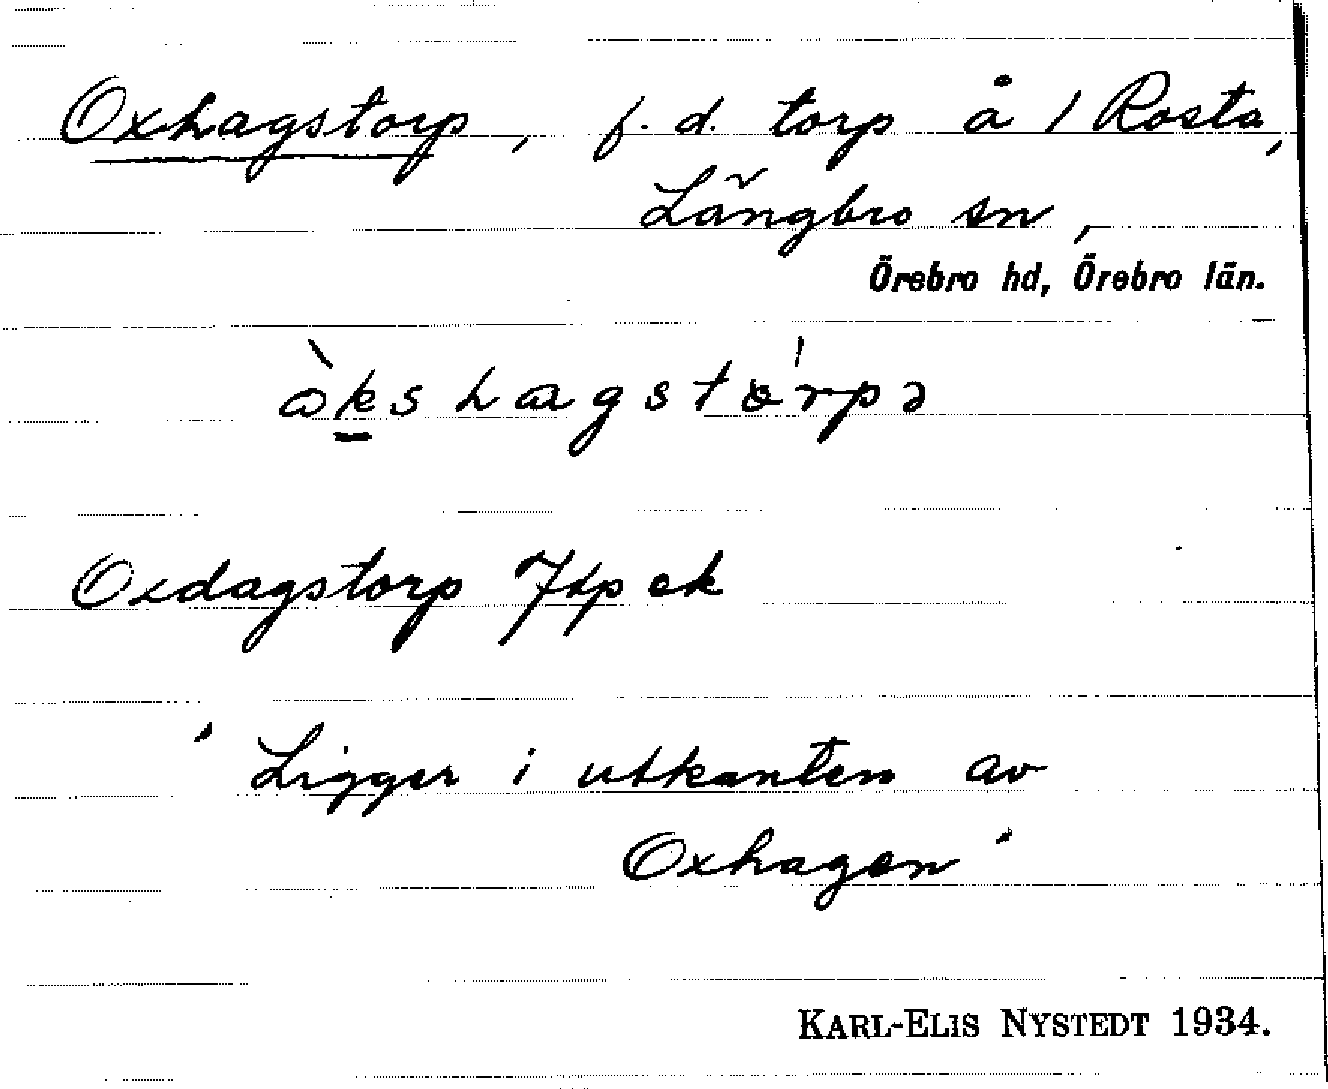 Oxhagstorp, f. d. torp å 1 Rosta,
Längbro sn,
Örebro hd, Örebro län.
òkshagstórpə
Oxdagstorp Jtp ek
"Ligger i utkanten av
Oxhagen"
KARL-ELIS NYSTEDT 1934.